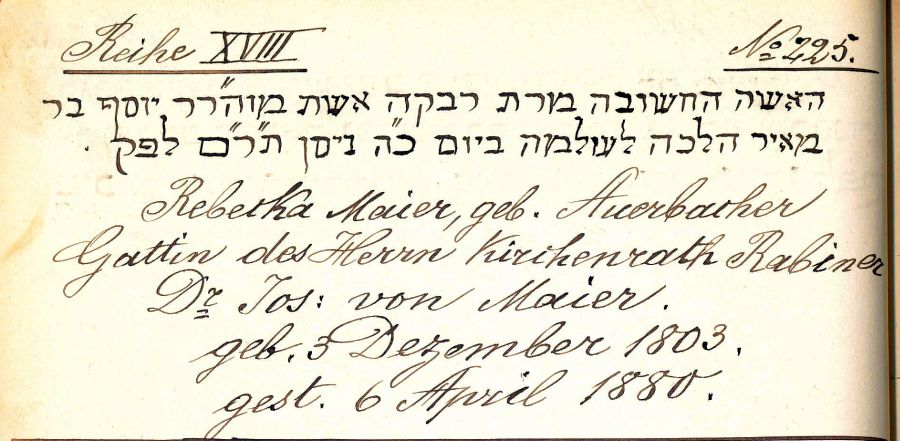 Reihe XVIII
No 225.
האשה החשובה מרת רבקה אשת מוה״רר יוסף בר
מאיר הלכה לעולמה ביום כ״ה ניסן ת״ר״ם לפק .
Rebecka Maier, geb. Auerbacher
Gattin des Herrn Kirchenrath Rabiner
Dr Jos: von Maier.
geb. 3 Dezember 1803.
gest. 6 April 1880.